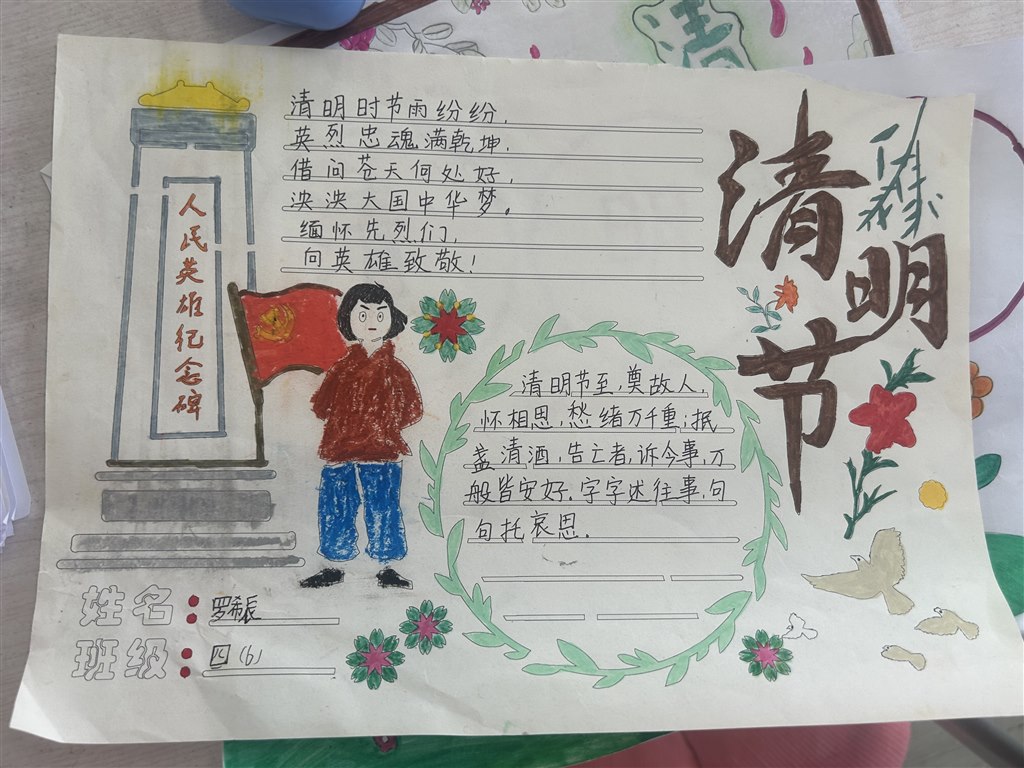 清明时节雨纷纷,
英烈忠魂满乾坤,
借问苍天何处好,
泱泱大国中华梦。
缅怀先烈们,
向英雄致敬!
人民英雄纪念碑
清明节
清明节至,奠故人,
怀相思,愁绪万千重;抿
盏清酒,告亡者,诉今事,万
般皆安好.字字述往事,句
句托哀思.
姓名:罗希辰
班级:四(6)
清